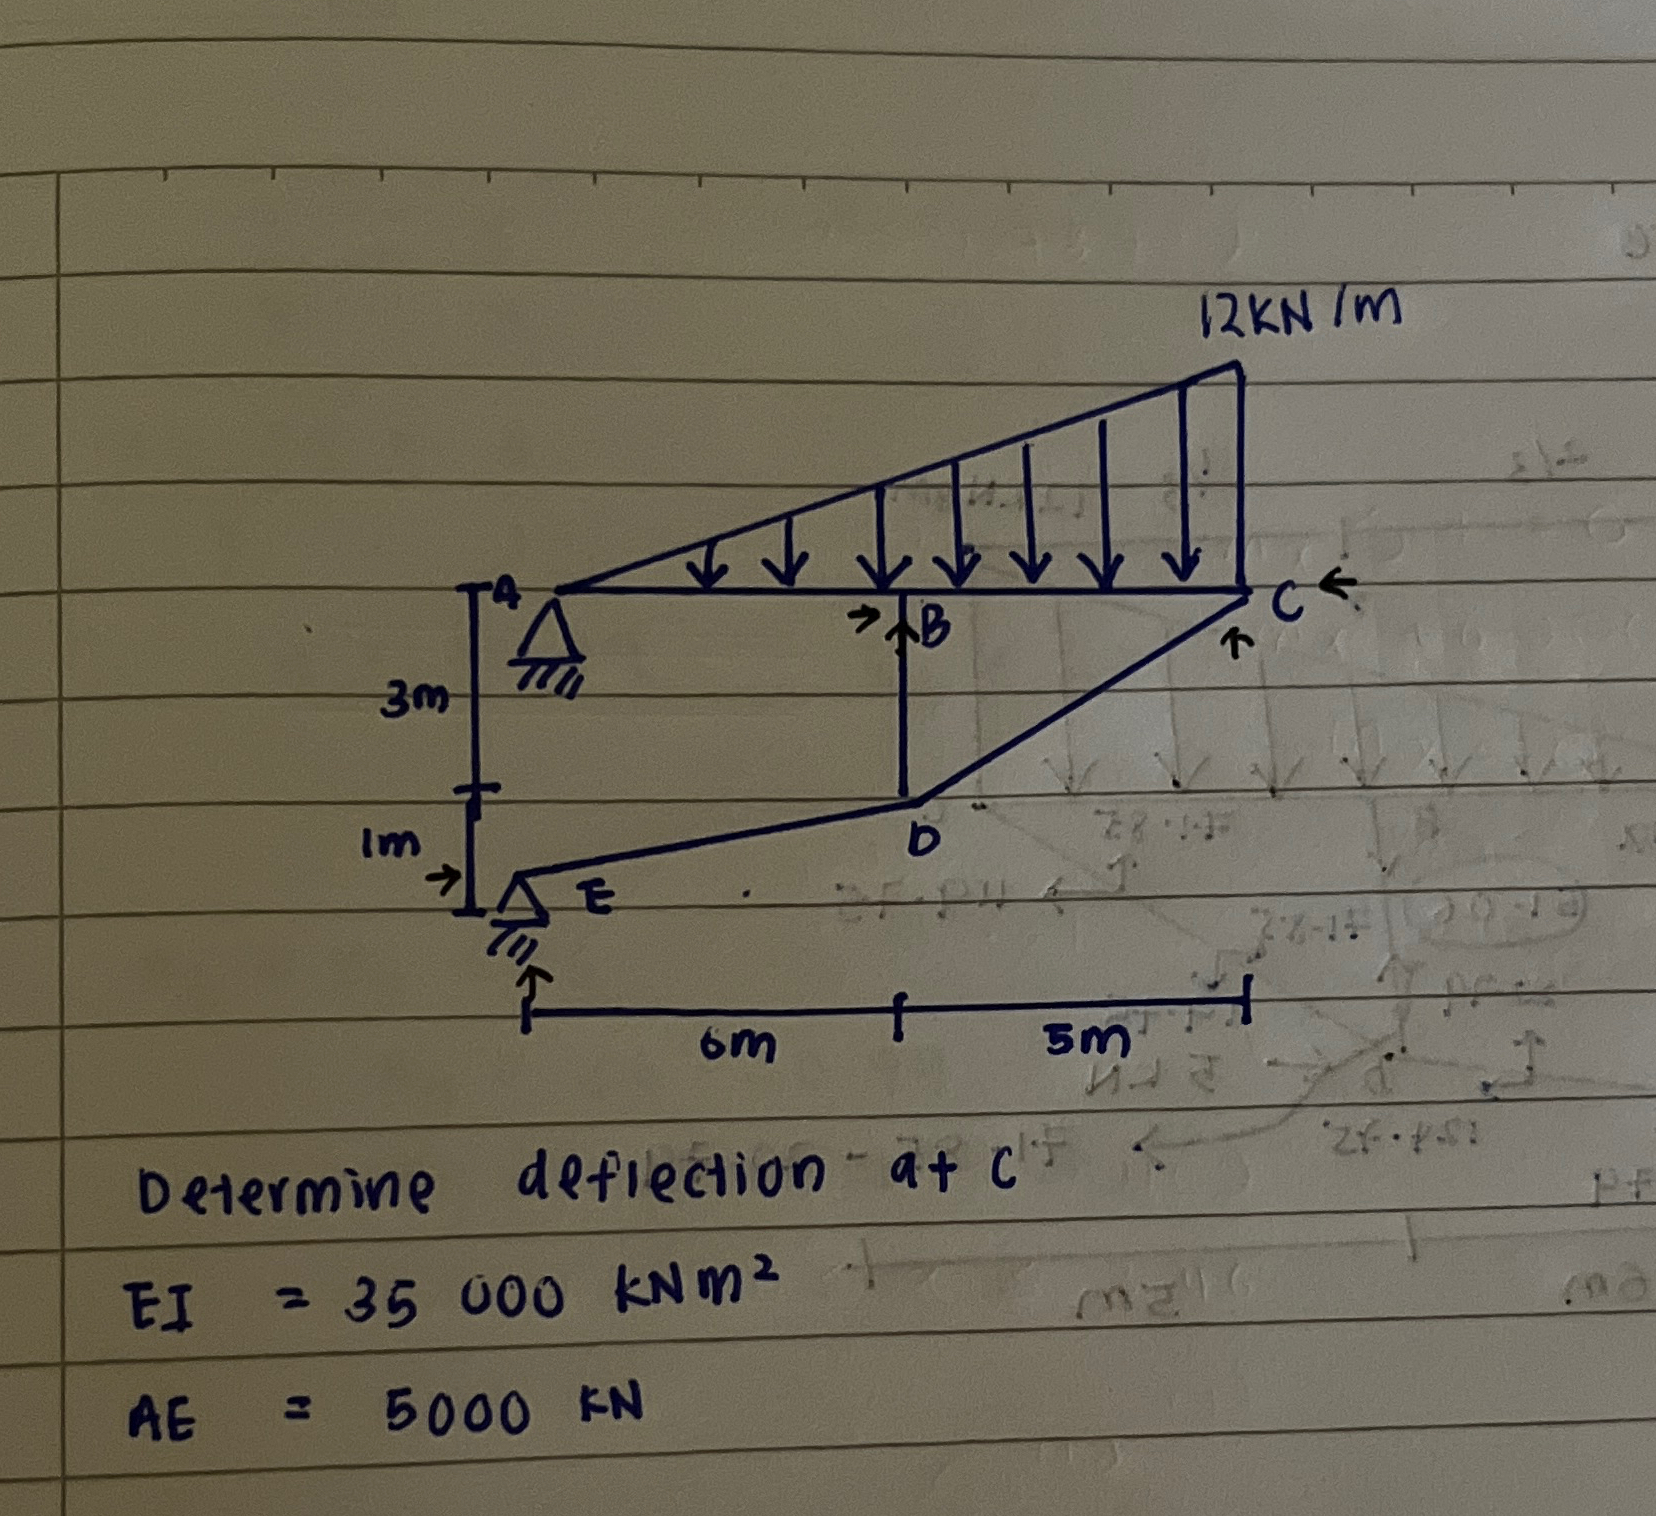 12KN/m
A
B
C
3m
1m
D
E
6m
5m
Determine deflection at C
EI = 35 000 KNm²
AE = 5000 KN